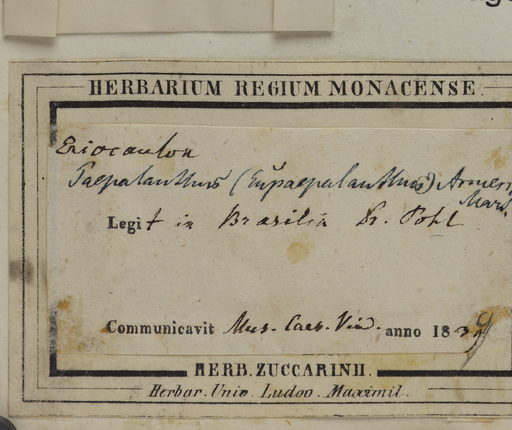 HERBARIUM REGIUM MONACENSE.
Eriocaulon
Paepalanthus (Eupaepalanthus) Armeri
Mart.
Legit in Brasilia Dr. Pohl
Communicavit Mus. Caes. Vin. anno 1839
HERB. ZUCCARINII.
Herbar. Univ. Ludov. Maximil.